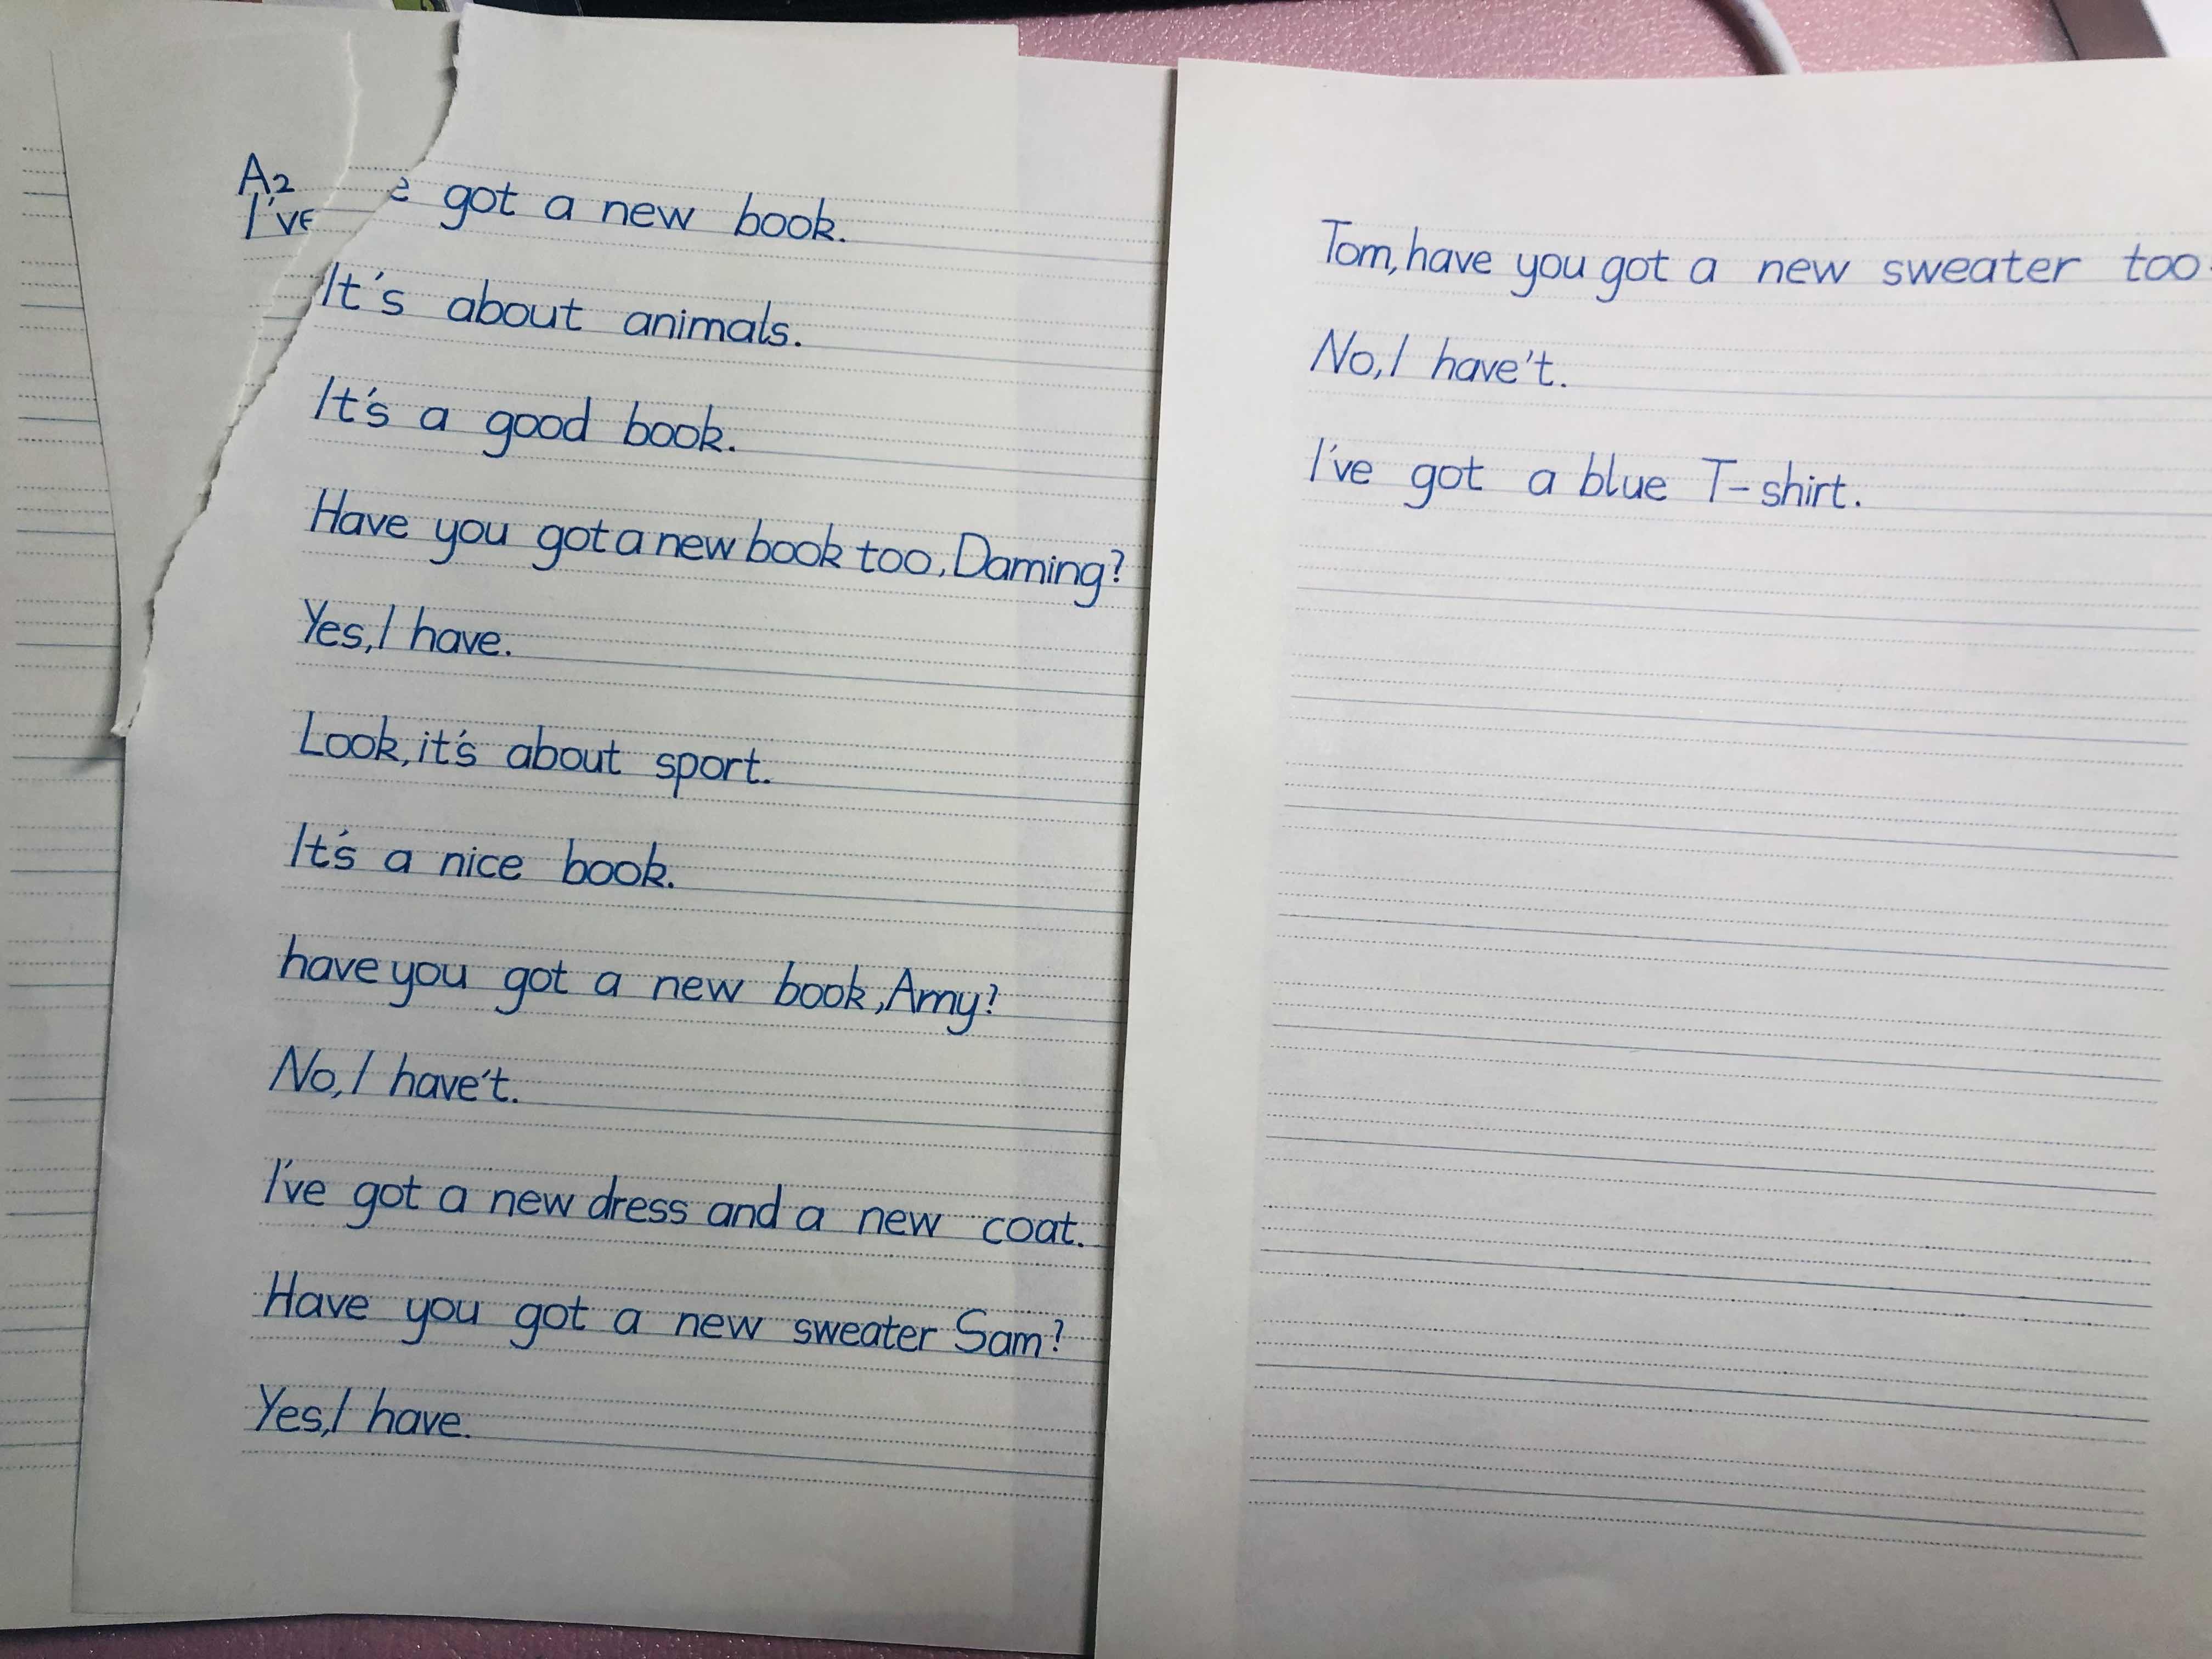 A2
I've got a new book.
It's about animals.
It's a good book.
Have you got a new book too, Daming?
Yes, I have.
Look, it's about sport.
It's a nice book.
have you got a new book, Amy?
No, I have't.
I've got a new dress and a new coat.
Have you got a new sweater Sam?
Yes, I have.
Tom, have you got a new sweater too
No, I have't.
I've got a blue T-shirt.